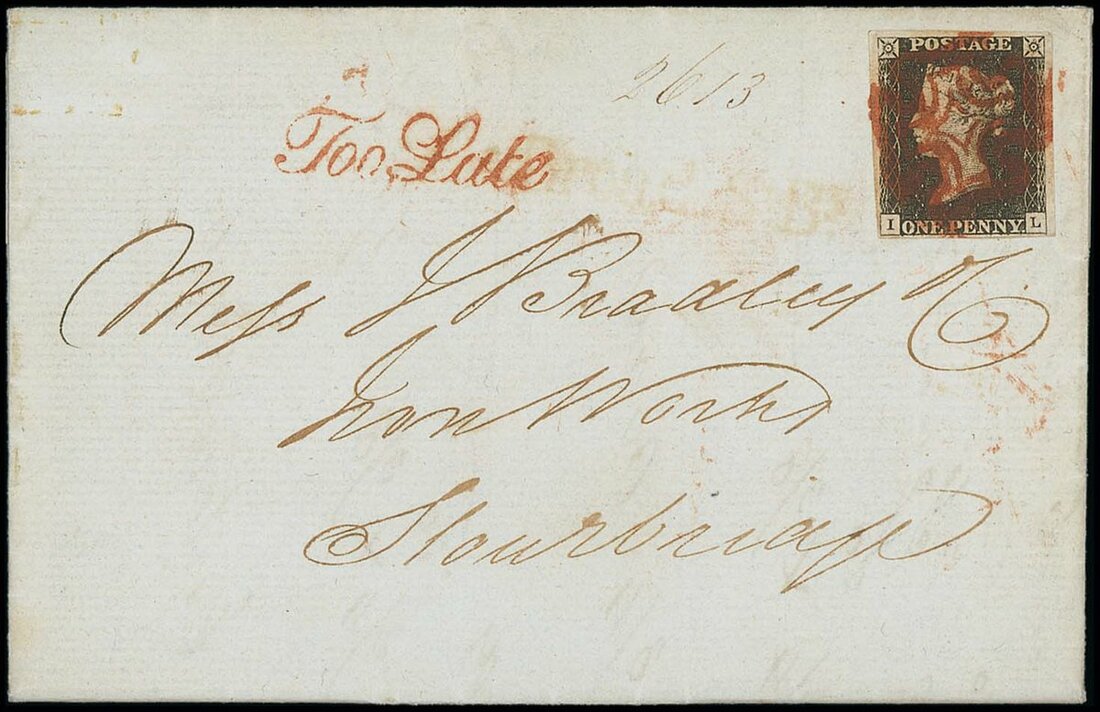 2613
Too Late
POSTAGE
I ONE PENNY. L
Mess J Bradley &Co
Iron Works
Stourbridge